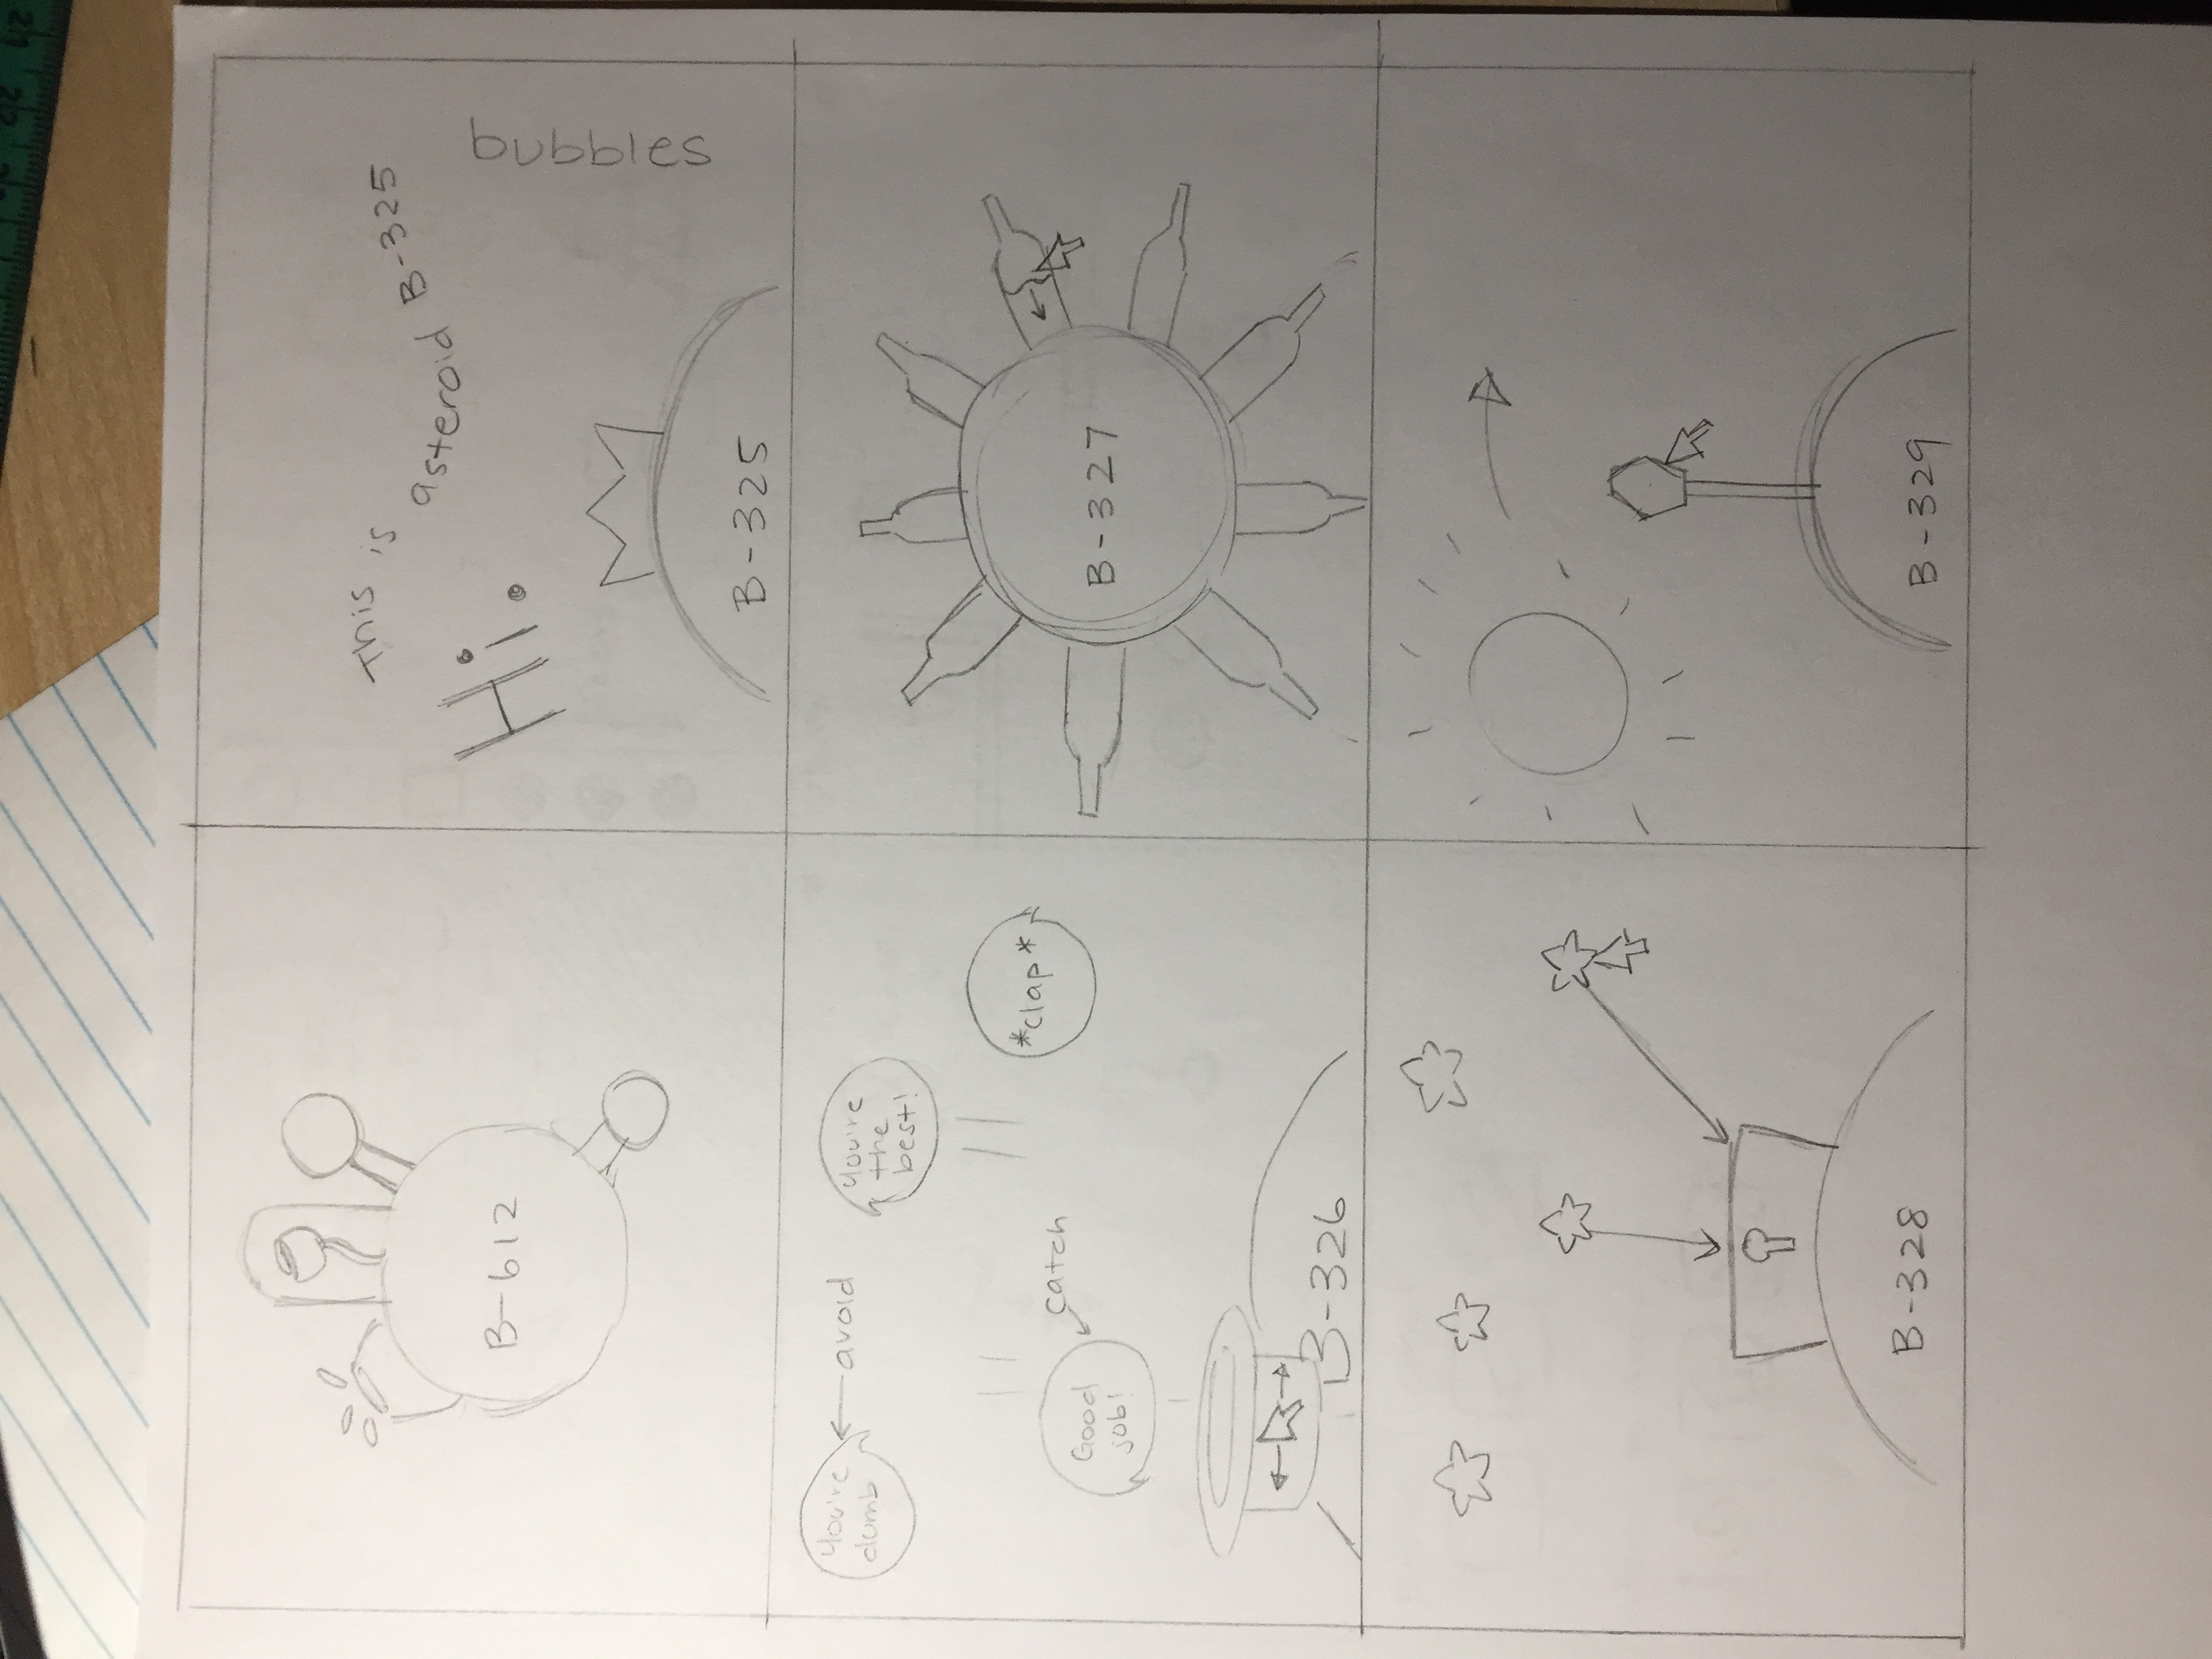 B-612
This is asteroid B-325
Hi.
bubbles
B-325
You're
dumb
avoid
You're
the
best!
*clap*
catch
Good
job!
B-326
B-327
B-328
B-329